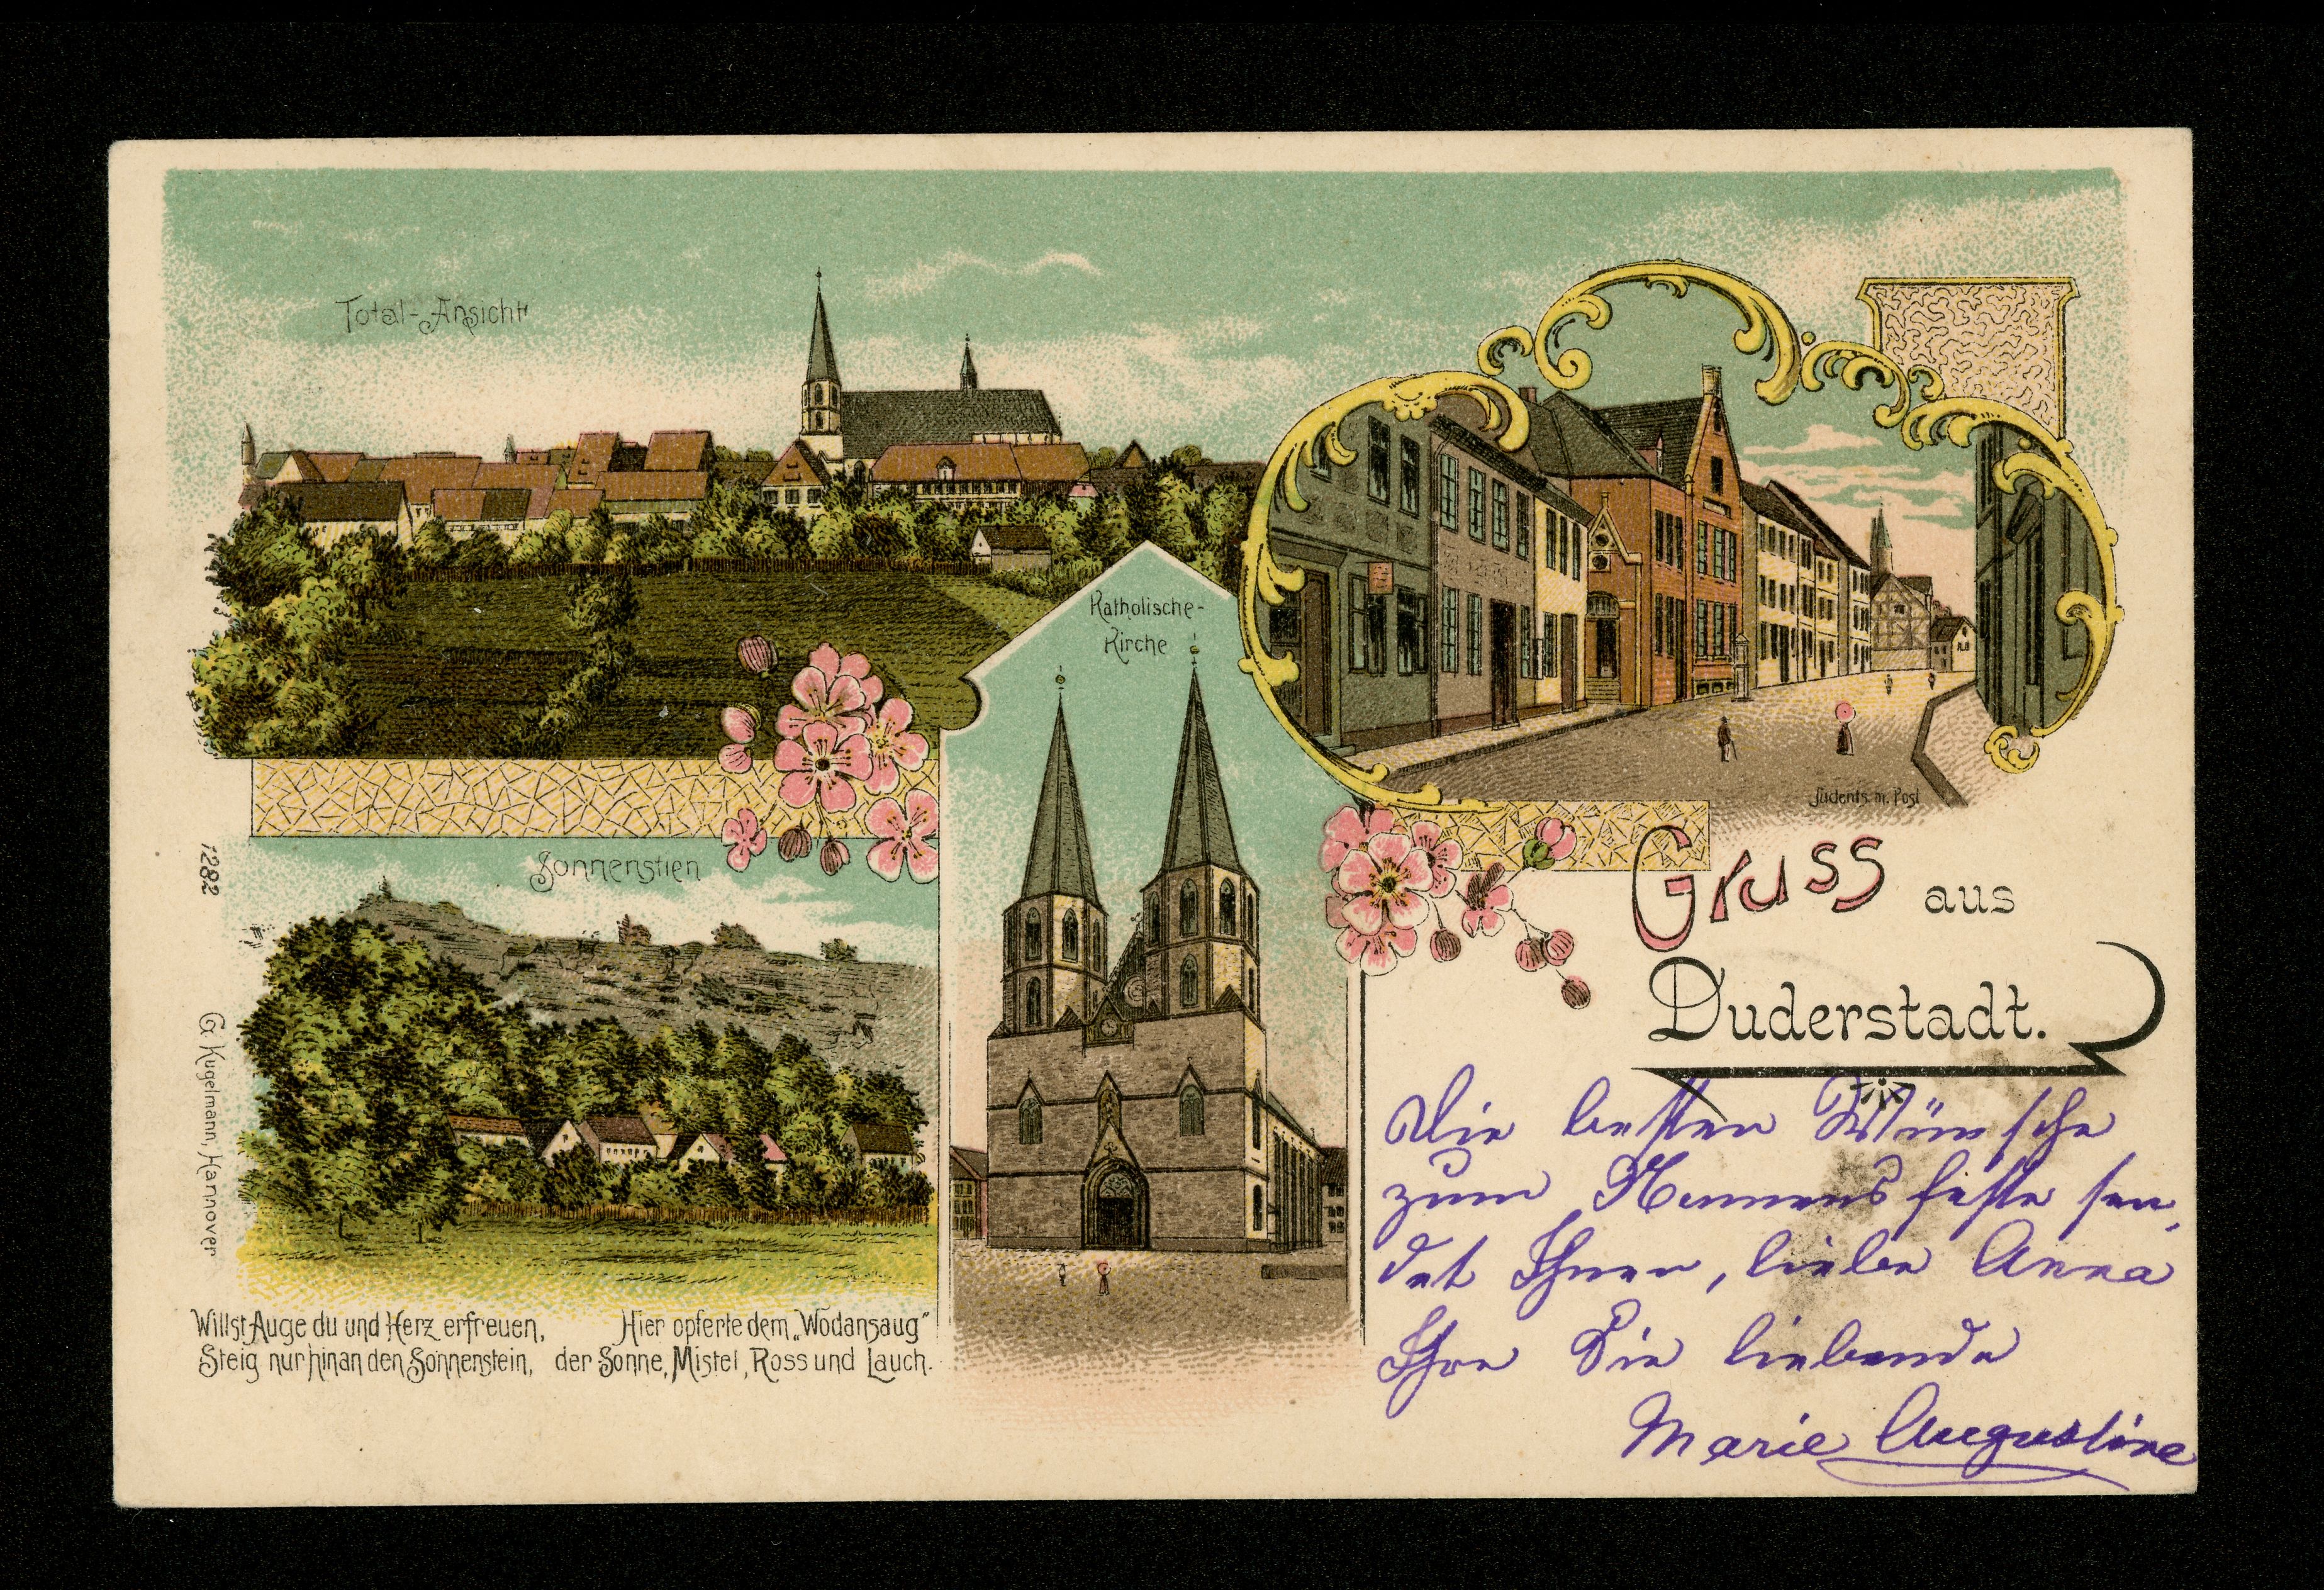 Total-Ansicht
Katholische-
Kirche
Judents. m. Post
Gruss aus
Duderstadt.
Sonnenstien
1282
G. Kugelmann, Hannover
Willst Auge du und Herz erfreuen,
Steig nur hinan den Sonnenstein,
Hier opferte dem „Wodansaug“
der Sonne, Mistel, Ross und Lauch.
Die besten Wünsche
zum Namensfeste sen-
det Ihnen, liebe Anna
Ihre Sie liebende
Marie Augustine